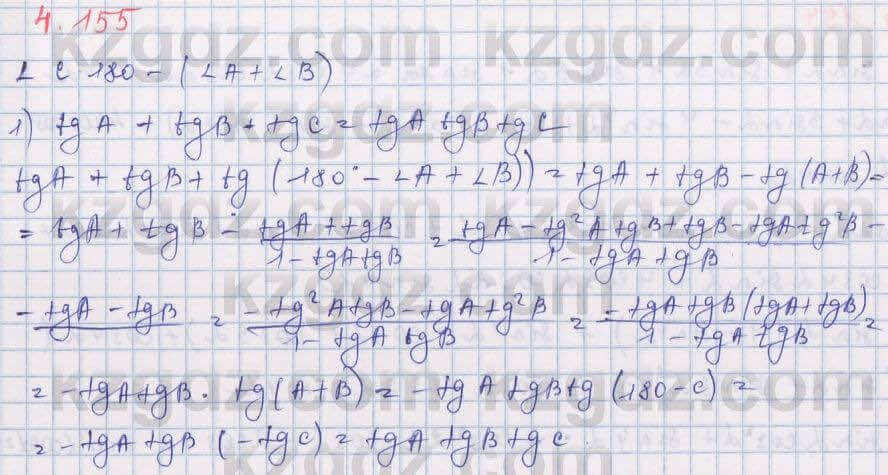 4.155
∠ C 180 - (∠A + ∠B)
1) tg A + tg B + tg C = tg A tg B tg C
tg A + tg B + tg (180° - ∠A + ∠B)) = tg A + tg B - tg (A+B) =
= tg A + tg B - (tg A + tg B)/(1 - tg A tg B) = (tg A - tg² A tg B + tg B - tg A tg² B -)/(1 - tg A tg B)
(- tg A - tg B) = (- tg² A tg B - tg A tg² B)/(1 - tg A tg B) = (- tg A tg B (tg A + tg B))/(1 - tg A tg B) =
= - tg A tg B · tg (A + B) = - tg A tg B tg (180 - C) =
= - tg A tg B (- tg C) = tg A tg B tg C.
kzgdz.com